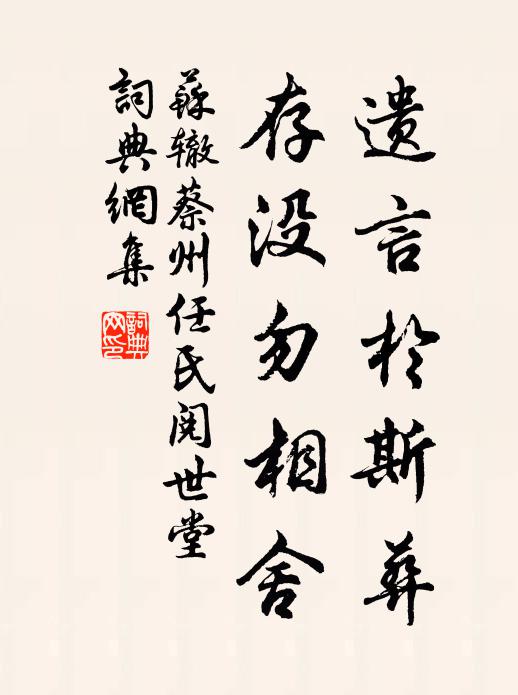 遗言於斯葬
存没勿相舍
蘇辙蔡州任氏阅世堂
詞典網集
詞典
网印